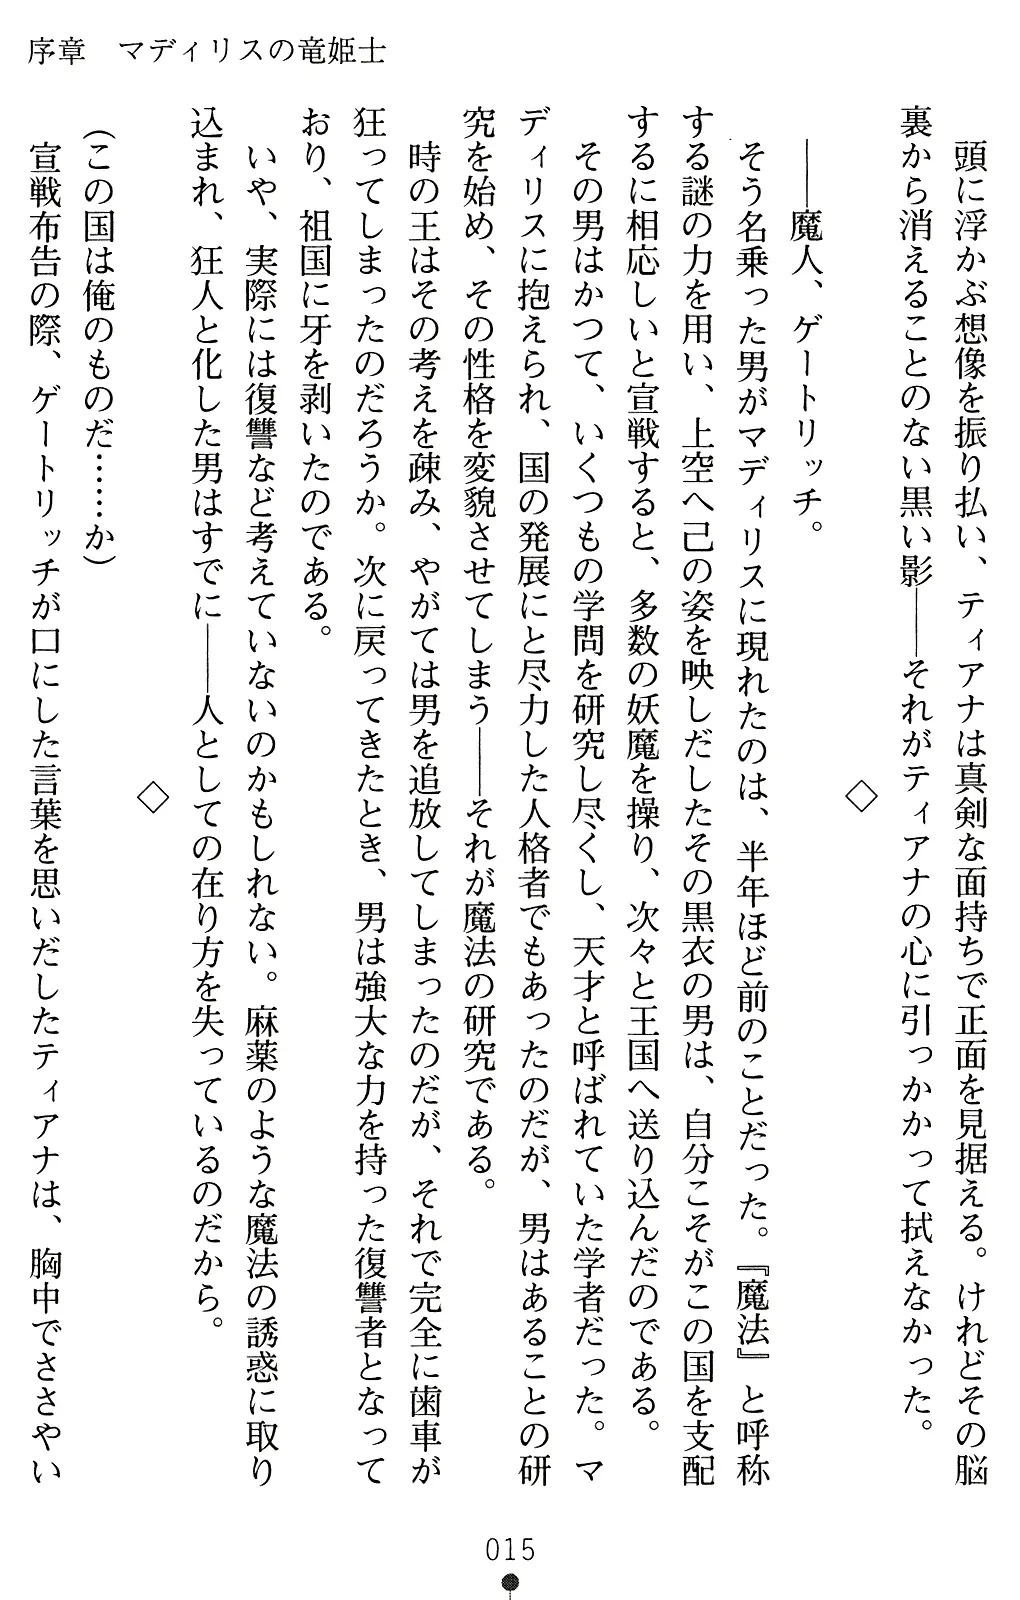 序章　マディリスの竜姫士
　頭に浮かぶ想像を振り払い、ティアナは真剣な面持ちで正面を見据える。けれどその脳
裏から消えることのない黒い影――それがティアナの心に引っかかって拭えなかった。
◇
　――魔人、ゲートリッチ。
　そう名乗った男がマディリスに現れたのは、半年ほど前のことだった。『魔法』と呼称
する謎の力を用い、上空へ己の姿を映しだしたその黒衣の男は、自分こそがこの国を支配
するに相応しいと宣戦すると、多数の妖魔を操り、次々と王国へ送り込んだのである。
　その男はかつて、いくつもの学問を研究し尽くし、天才と呼ばれていた学者だった。マ
ディリスに抱えられ、国の発展にと尽力した人格者でもあったのだが、男はあることの研
究を始め、その性格を変貌させてしまう――それが魔法の研究である。
　時の王はその考えを疎み、やがては男を追放してしまったのだが、それで完全に歯車が
狂ってしまったのだろうか。次に戻ってきたとき、男は強大な力を持った復讐者となって
おり、祖国に牙を剥いたのである。
　いや、実際には復讐など考えていないのかもしれない。麻薬のような魔法の誘惑に取り
込まれ、狂人と化した男はすでに――人としての在り方を失っているのだから。
◇
（この国は俺のものだ……か）
　宣戦布告の際、ゲートリッチが口にした言葉を思いだしたティアナは、胸中でささやい
015